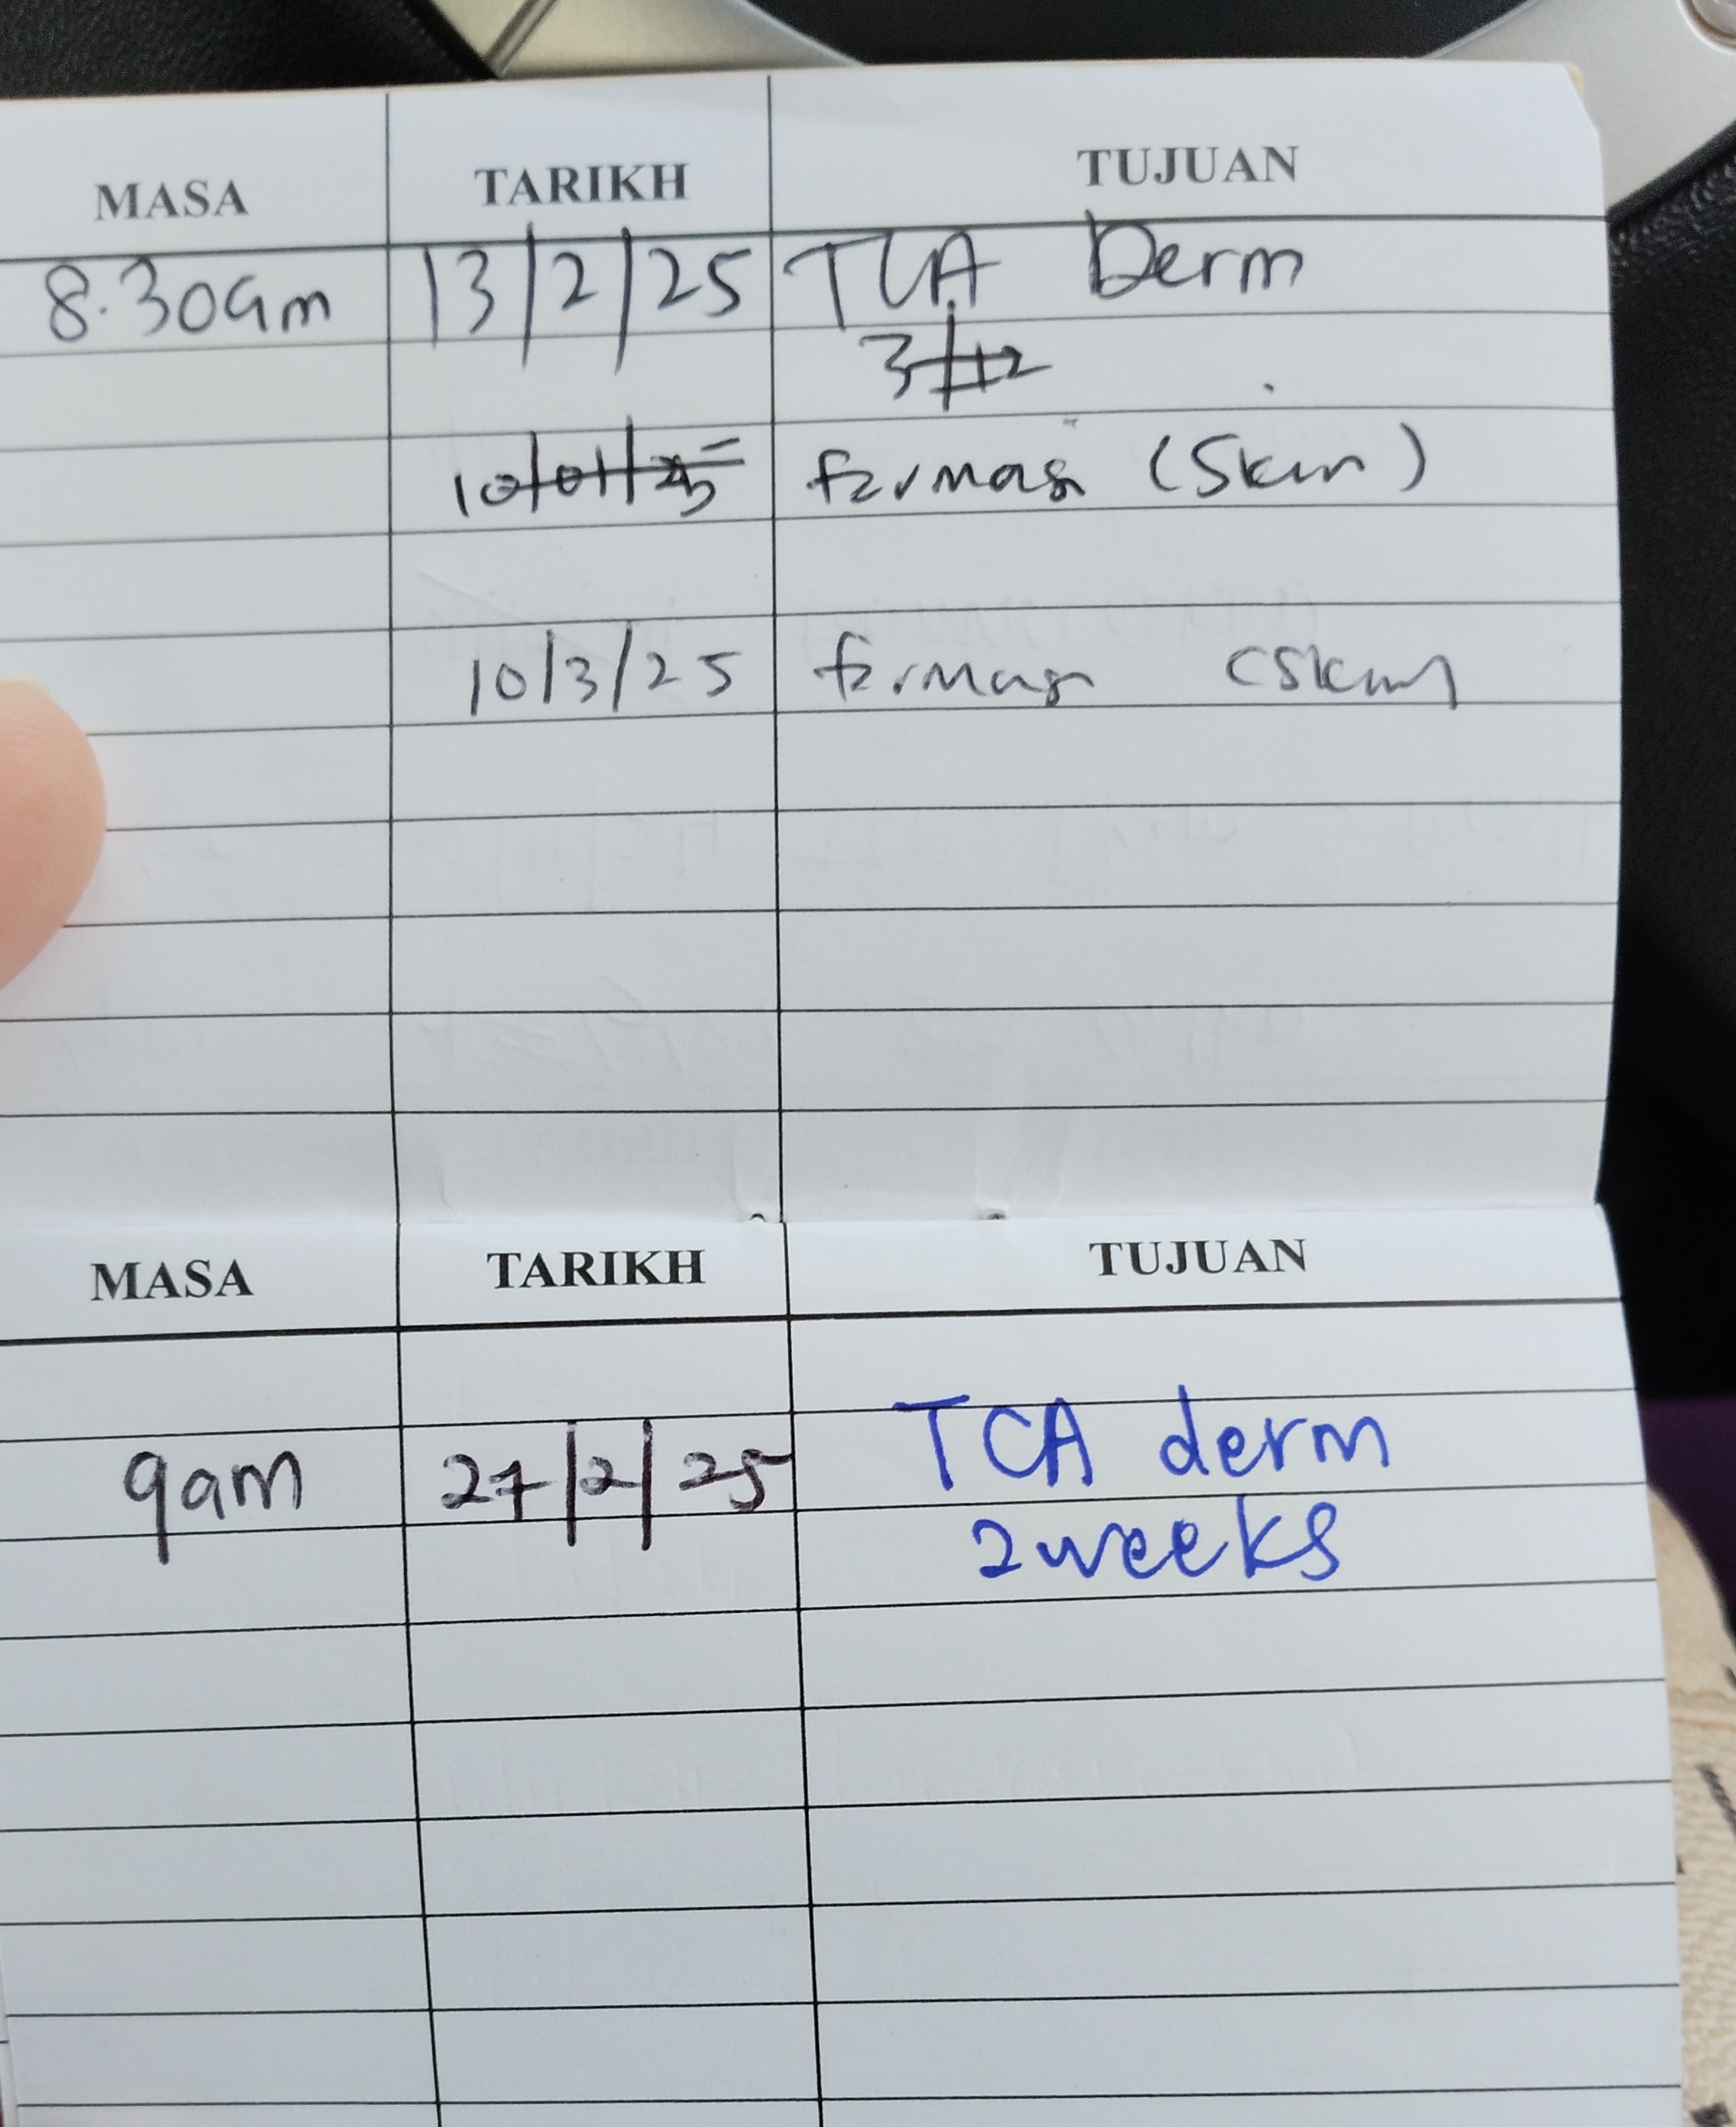 MASA TARIKH TUJUAN
8.30am 13/2/25 TCA Derm
3/12
10/01/25 farmasi (Skin)
10/3/25 farmasi (Skin)
MASA TARIKH TUJUAN
9am 27/2/25 TCA derm
2 weeks